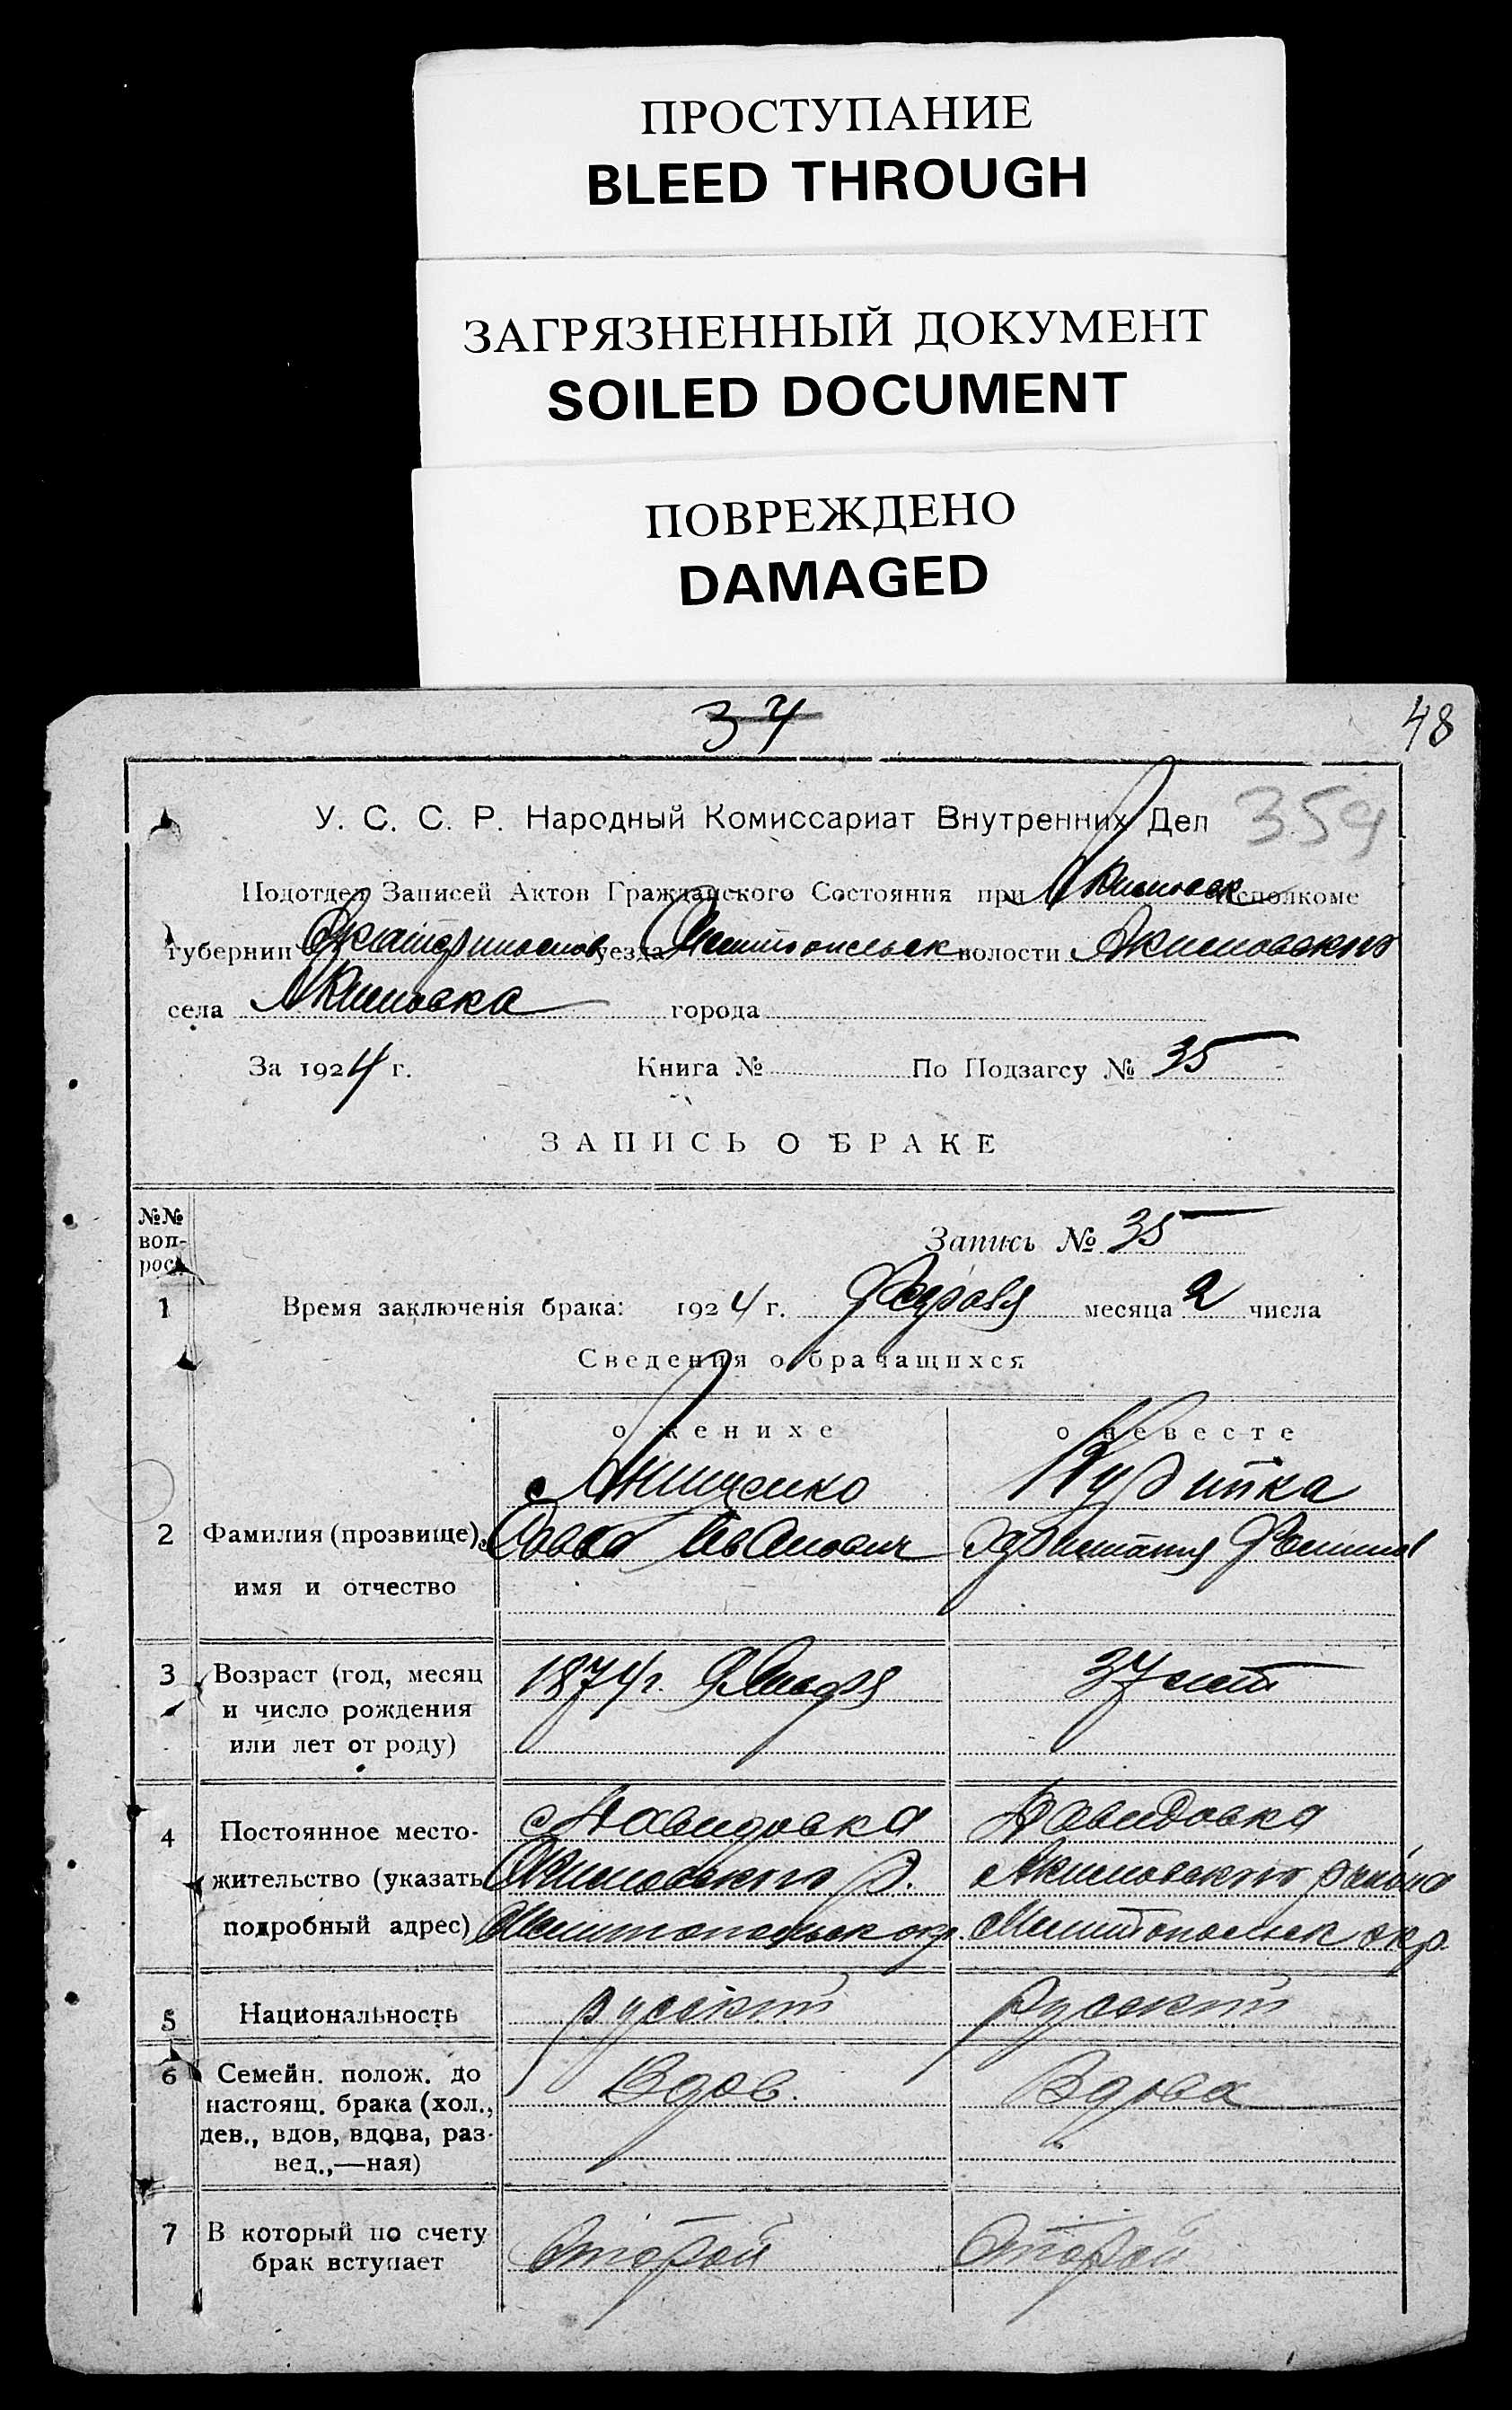 ПРОСТУПАНИЕ
BLEED THROUGH
ЗАГРЯЗНЕННЫЙ ДОКУМЕНТ
SOILED DOCUMENT
ПОВРЕЖДЕНО
DAMAGED
34
48
У. С. С. Р. Народный Комиссариат Внутренних Дел
359
Подотдел Записей Актов Гражданского Состояния при Акимовск Исполкоме
губернии Екатеринослав уезда Мелитопольск волости Акимовского
села Акимовка города
За 1924 г. Книга № По Подзагсу № 35
ЗАПИСЬ О БРАКЕ
№№ воп- рос.
Запись № 35
1 Время заключенія брака: 1924 г. месяца 2 числа
Сведения о брачащихся
о женихе о невесте
Анищенко
2 Фамилия (прозвище), Иванович
имя и отчество
3 Возраст (год, месяц 1874 г. 37 лет
и число рождения
или лет от роду)
4 Постоянное место- Давидовка Давидовка
жительство (указать Акимовского р. Акимовского района
подробный адрес) Мелитопольск окр. Мелитопольск окр.
5 Национальность русский русский
6 Семейн. полож. до Вдов. Вдова
настоящ. брака (хол.,
дев., вдов, вдова, раз-
вед.,—ная)
7 В который по счету Второй Второй
брак вступает